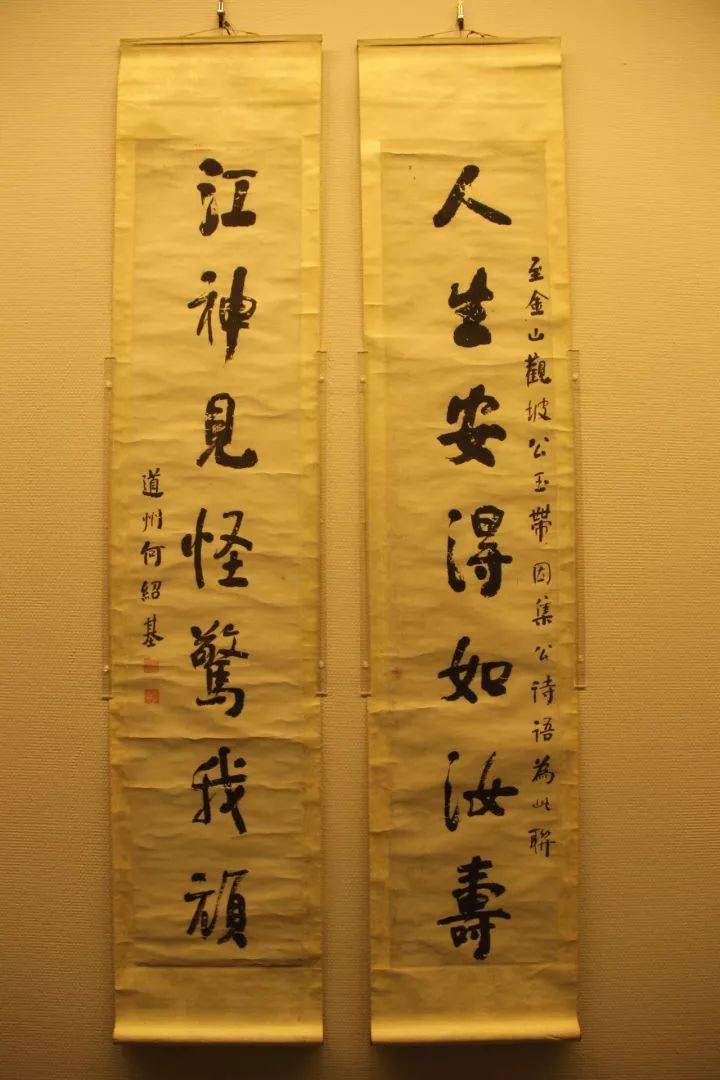 至金山觀坡公玉帶因集公詩語為此聯
人生安得如汝壽
江神見怪驚我頑
道州何紹基